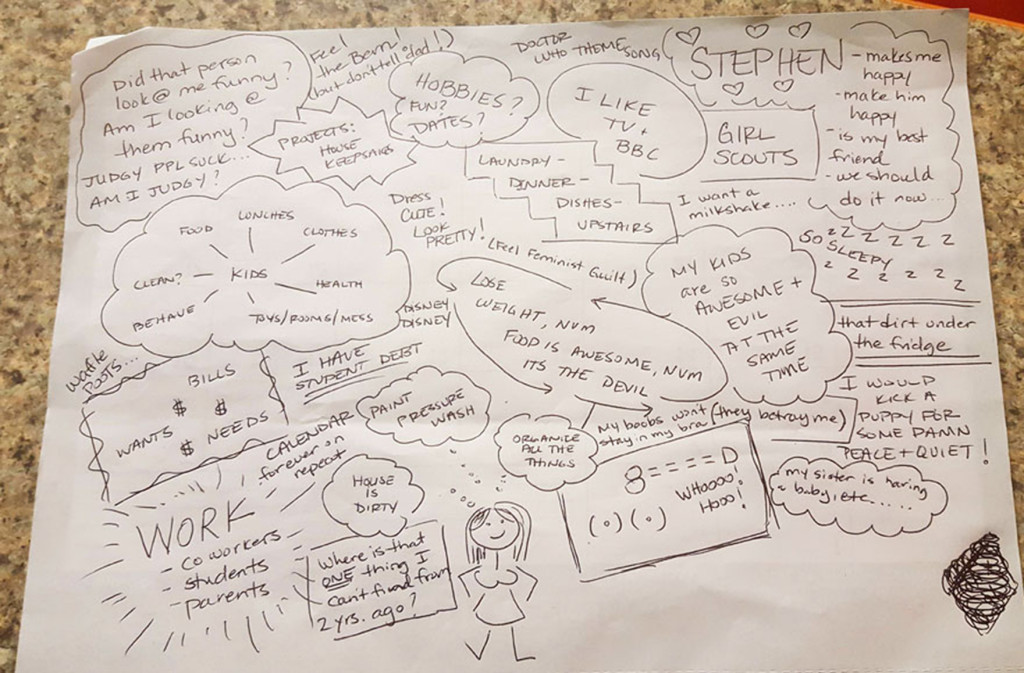 Did that person
look @ me funny?
Am I looking @
them funny?
JUDGY PPL SUCK...
AM I JUDGY?
Feel!
the Bern!
but don't tell dad!)
PROJECTS:
HOUSE
KEEPSAKES
HOBBIES?
FUN?
DATES?
DOCTOR
WHO THEME SONG
I LIKE
TV +
BBC
STEPHEN
- makes me
happy
- make him
happy
- is my best
friend
- we should
do it now...
GIRL
SCOUTS
LAUNDRY -
DINNER -
DISHES -
UPSTAIRS
I want a
milkshake....
SO SLEEPY
Z Z Z Z Z Z
Z Z Z Z Z Z
LUNCHES
FOOD
CLOTHES
CLEAN?
KIDS
HEALTH
BEHAVE
TOYS/ROOMS/MESS
Dress
CUTE!
LOOK
PRETTY!
(Feel Feminist Guilt)
DISNEY
DISNEY
LOSE
WEIGHT, NUM
FOOD IS AWESOME, NUM
ITS THE DEVIL
MY KIDS
are so
AWESOME +
EVIL
AT THE
SAME
TIME
that dirt under
the fridge
waffle
poots...
BILLS
$ $
WANTS $ NEEDS
I HAVE
STUDENT DEBT
CALENDAR
forever on
repeat
PAINT
PRESSURE
WASH
ORGANIZE
ALL THE
THINGS
My boobs won't (they betray me)
stay in my bra
I WOULD
KICK A
PUPPY FOR
SOME DAMN
PEACE + QUIET!
HOUSE
IS
DIRTY
8====D
WHOOOO!
HOO!
(.) (.)
my sister is having
a baby, etc.....
WORK
- coworkers
- students
- parents
Where is that
ONE thing I
can't find from
2 yrs. ago?